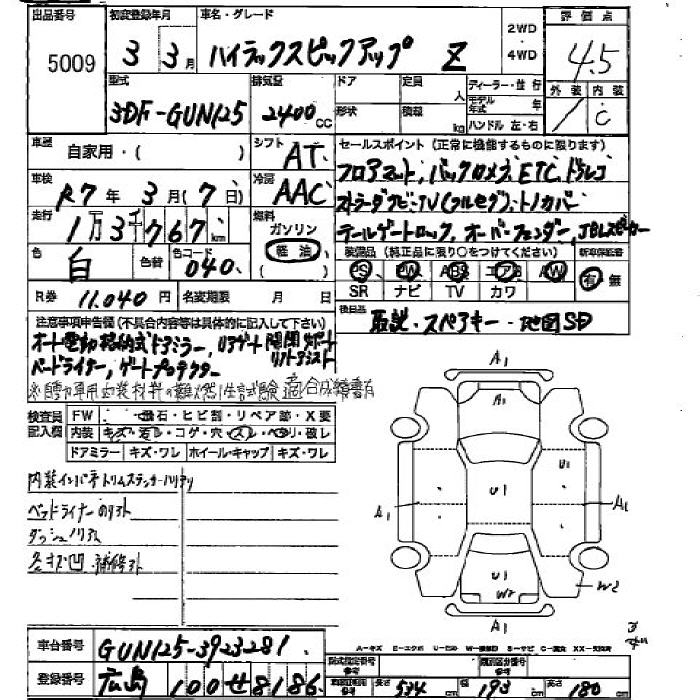 出品番号 初度登録年月 車名・グレード 評価点
5009 3年 3月 ハイラックスピックアップ Z 2WD・4WD 4.5
型式 排気量 ドア 定員 人 ディーラー・並行 外装 内装
3DF-GUN125 2400cc 形状 積載 kg モデル年式 年 ハンドル 左・右 C
車歴 自家用・( ) シフト AT セールスポイント(正常に機能するものに限ります)
車検 R7年 3月(7日) 冷房 AAC フロアマット, バックカメラ, ETC, ドラレコ
走行 1万3千767km 燃料 ガソリン 軽油 ( )
テールゲートロック, オーバーフェンダー, JBLスピーカー
色 白 色替 色コード 040
装備品(純正品に限り○をつけてください) 新車保証書
PS PW ABS エアB AW 有 無
SR ナビ TV カワ
R券 11,040円 名変期限 月 日 後日品 取説・スペアキー・地図SD
注意事項申告欄(不具合内容等は具体的に記入して下さい)
オート電動格納式ドアミラー, リアゲート開閉サポート リフトアシスト
ベッドライナー, ゲートプロテクター
検査員記入欄 FW 飛石・ヒビ割・リペア跡・X要
内装 キズ・汚レ・コゲ・穴・スレ・ヘタリ・破レ
ドアミラー キズ・ワレ ホイール・キャップ キズ・ワレ
ベッドライナーのリスト
A1
A1
U1
U1
A1
A1
U1
W2
W2
A1
A-キズ E-エクボ U-凹み W-補修跡 S-サビ C-腐食 XX-交換済
車台番号 GUN125-3923281
型式指定番号 参考 類別区分番号 参考
登録番号 広島 100 せ 8186
長さ 534cm 幅 193cm 高さ 180cm